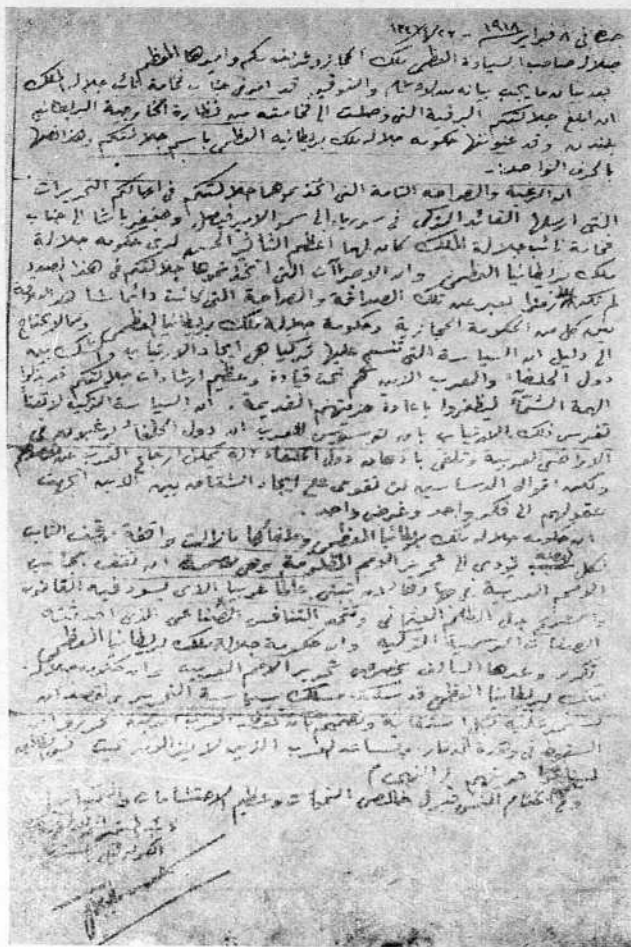 جده في ٨ فبراير ١٩١٨ -
جلالة صاحب السيادة العظمى ملك الحجاز وشريف مكة واميرها المعظم
بعد بيان ما يجب بيانه من الاحتشام والتوقير قد امرني جناب فخامة نائب جلالة الملك
ان ابلغ جلالتكم البرقية التي وصلت الى فخامته من نظارة الخارجية البريطانية
بلندن وقد عنونتها حكومة جلالة ملك بريطانيا العظمى باسم جلالتكم وهذا نصها
بالحرف الواحد :-
ان الرغبة والصراحة التامة التي اتخذتموها جلالتكم في ارسالكم التحريرات
التي ارسلها القائد التركي في سوريا الى سمو الامير فيصل وجعفر باشا الى جناب
فخامة نائب جلالة الملك كان لها اعظم التأثير الحسن لدى حكومة جلالة
ملك بريطانيا العظمى وان الاجراآت التي اتخذتموها جلالتكم في هذا الصدد
لم تكن الا رمزا يعبر عن تلك الصداقة والصراحة التي كانت دائما شاهد
بين كل من الحكومة الحجازية وحكومة جلالة ملك بريطانيا العظمى ومما لا يحتاج
الى دليل ان السياسة التي تنسج عليها تركيا هي ايجاد الارتياب والشك بين
دول الحلفاء والعرب الذين هم تحت قيادة وعظيم ارشادات جلالتكم قد بذلوا
الهمة الشماء ليظفروا باعادة حريتهم القديمة . ان السياسة التركية لا تفتأ
تغرس ذلك الارتياب بان توسوس للعرب ان دول الحلفاء يرغبون في
الاراضي العربية وتلقي باذهان دول الحلفاء انه يمكن ارجاع العرب عن
ولكن اقوال الدساسين لن تقوى على ايجاد الشقاق بين الذين اتجهت
عقولهم الى فكر واحد وغرض واحد .
ان حكومة جلالة ملك بريطانيا العظمى وحلفائها ما زالت واقفة موقف الثابت
لكل نهضة تؤدي الى تحرير الامم المظلومة وهي مصممة ان تقف بجانب
الامم العربية في جهادها لان تبني عالما عربيا الذي يسود فيه القانون
والشرع بدل الظلم العثماني وتتحد التنافس الصناعي الذي احدثته
الصفات الرسمية التركية وان حكومة جلالة ملك بريطانيا العظمى
تكرر وعدها السالف بخصوص تحرير الامم العربية وان حكومة جلالة
ملك بريطانيا العظمى قد سلكت مسلك سياسة التحرير وتقصد ان
تستمر عليه بكل استقامة وتصميم بان تحفظ العرب الذين تحرروا من
السقوط في وهدة الدمار وتساعد العرب الذين لا يزالون تحت نير الظالمين
لينالوا حريتهم (انتهى)
وفي الختام التمس قبول خالص التحيات وعظيم الاحتشامات